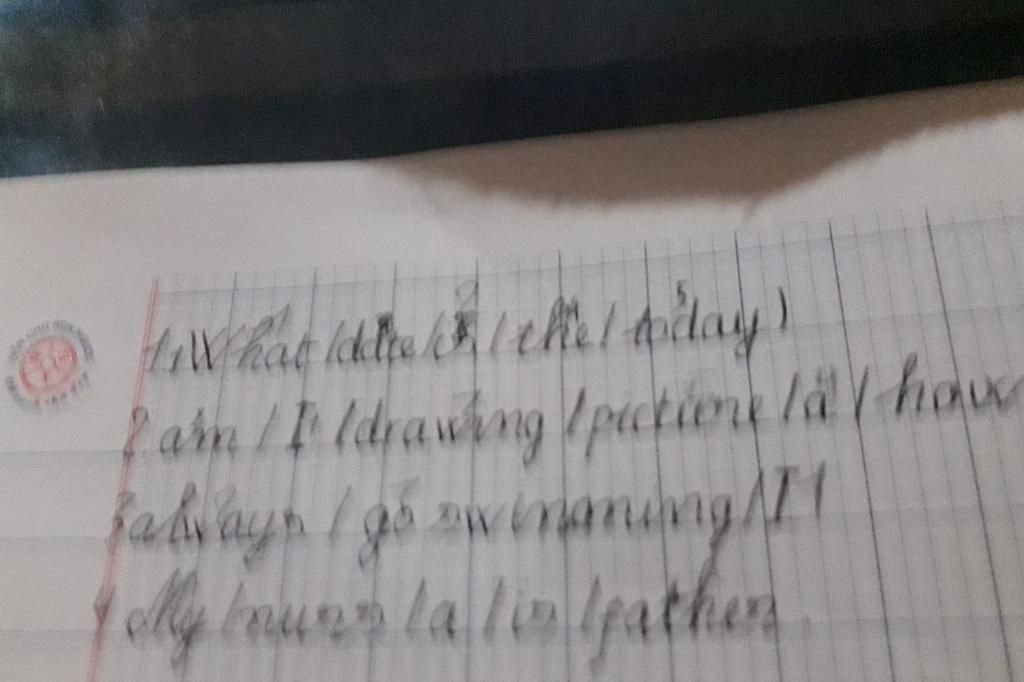 1. What / date / is / the / today /
2 am / I / drawing / picture / a / how
3 always / go swimming / I /
4 My / nurs / a / is / father